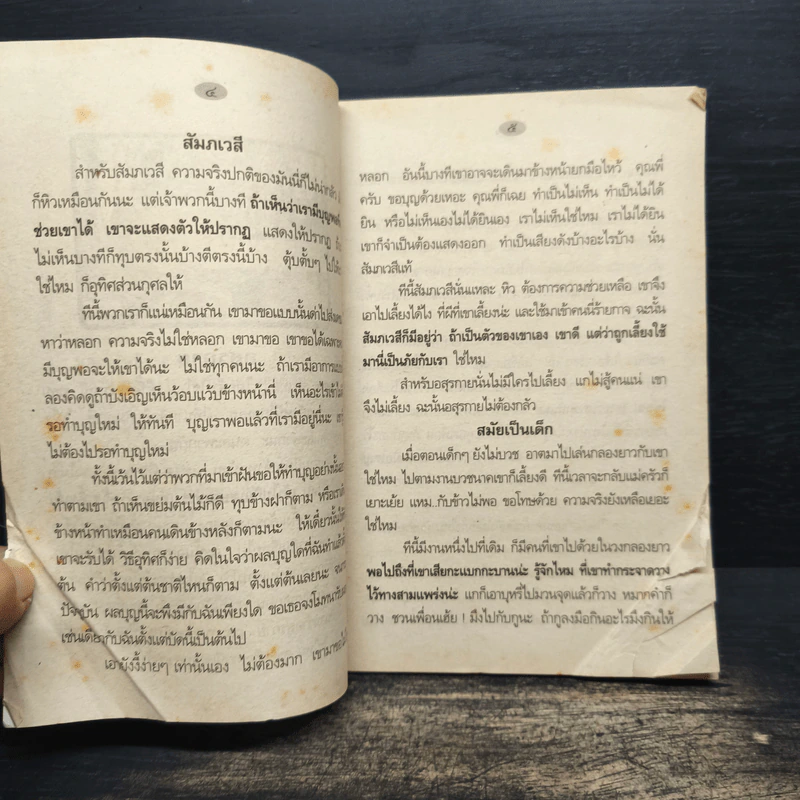 ๔
สัมภเวสี
สำหรับสัมภเวสี ความจริงปกติของมันนี่ก็ไม่น่ากลัว
ก็หิวเหมือนกันนะ แต่เจ้าพวกนี้บางที ถ้าเห็นว่าเรามีบุญพอ
ช่วยเขาได้ เขาจะแสดงตัวให้ปรากฏ แสดงให้ปรากฏ
ไม่เห็นบางทีก็ทุบตรงนั้นบ้างตีตรงนี้บ้าง ตุ้บตั้บๆ ไป
ใช่ไหม ก็อุทิศส่วนกุศลให้
ทีนี้พวกเราก็แน่เหมือนกัน เขามาขอแบบนั้นด่าไปส่ง
หาว่าหลอก ความจริงไม่ใช่หลอก เขามาขอ เขาขอได้เฉพาะ
มีบุญพอจะให้เขาได้นะ ไม่ใช่ทุกคนนะ ถ้าเรามีอาการ
ลองคิดดูถ้าบังเอิญเห็นว้อบแว้บข้างหน้านี่ เห็นอะไรเข้า
รอทำบุญใหม่ ให้ทันที บุญเราพอแล้วที่เรามีอยู่นี่นะ
ไม่ต้องไปรอทำบุญใหม่
ทั้งนี้เว้นไว้แต่ว่าพวกที่มาเข้าฝันขอให้ทำบุญอย่างนั้น
ทำตามเขา ถ้าเห็นขย่มต้นไม้ก็ดี ทุบข้างฝาก็ตาม หรือเรา
ข้างหน้าทำเหมือนคนเดินข้างหลังก็ตามนะ ให้เดี๋ยวนั้น
เขาจะรับได้ วิธีอุทิศก็ง่าย คิดในใจว่าผลบุญใดที่ฉันทำแล้ว
ต้น คำว่าตั้งแต่ต้นชาติไหนก็ตาม ตั้งแต่ต้นเลยนะ
ปัจจุบัน ผลบุญนี้จะพึงมีกับฉันเพียงใด ขอเธอจงโมทนา
เช่นเดียวกับฉันตั้งแต่บัดนี้เป็นต้นไป
เอายังงี้ง่ายๆ เท่านั้นเอง ไม่ต้องมาก เขามาขอ
๕
หลอก อันนี้บางทีเขาอาจจะเดินมาข้างหน้ายกมือไหว้ คุณพี่
ครับ ขอบุญด้วยเหอะ คุณพี่ก็เฉย ทำเป็นไม่เห็น ทำเป็นไม่ได้
ยิน หรือไม่เห็นเองไม่ได้ยินเอง เราไม่เห็นใช่ไหม เราไม่ได้ยิน
เขาก็จำเป็นต้องแสดงออก ทำเป็นเสียงดังบ้างอะไรบ้าง นั่น
สัมภเวสีแท้
ทีนี้สัมภเวสีนั่นแหละ หิว ต้องการความช่วยเหลือ เขาจึง
เอาไปเลี้ยงได้ไง ที่ผีที่เขาเลี้ยงน่ะ และใช้มาเข้าคนนี่ร้ายกาจ ฉะนั้น
สัมภเวสีก็มีอยู่ว่า ถ้าเป็นตัวของเขาเอง เขาดี แต่ว่าถูกเลี้ยงใช้
มานี่เป็นภัยกับเรา ใช่ไหม
สำหรับอสุรกายนั่นไม่มีใครไปเลี้ยง แกไม่สู้คนแน่ เขา
จึงไม่เลี้ยง ฉะนั้นอสุรกายไม่ต้องกลัว
สมัยเป็นเด็ก
เมื่อตอนเด็กๆ ยังไม่บวช อาตมาไปเล่นกลองยาวกับเขา
ใช่ไหม ไปตามงานบวชนาคเขาก็เลี้ยงดี ทีนี้เวลาจะกลับแม่ครัวก็
เยาะเย้ย แหม..กับข้าวไม่พอ ขอโทษด้วย ความจริงยังเหลือเยอะ
ใช่ไหม
ทีนี้มีงานหนึ่งไปที่เดิม ก็มีคนที่เขาไปด้วยในวงกลองยาว
พอไปถึงที่เขาเสียกะแบกกะบานน่ะ รู้จักไหม ที่เขาทำกระจาดวาง
ไว้ทางสามแพร่งน่ะ แกก็เอาบุหรี่ไปมวนจุดแล้วก็วาง หมากคำก็
วาง ชวนเพื่อนเฮ้ย ! มึงไปกับกูนะ ถ้ากูลงมือกินอะไรมึงกินให้